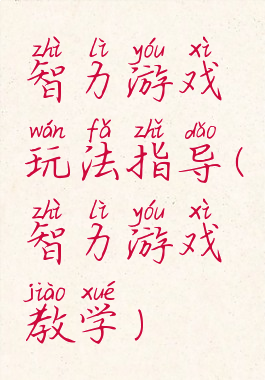 zhì lì yóu xì
智力游戏
wán fǎ zhǐ dǎo
玩法指导(
zhì lì yóu xì
智力游戏
jiào xué
教学)